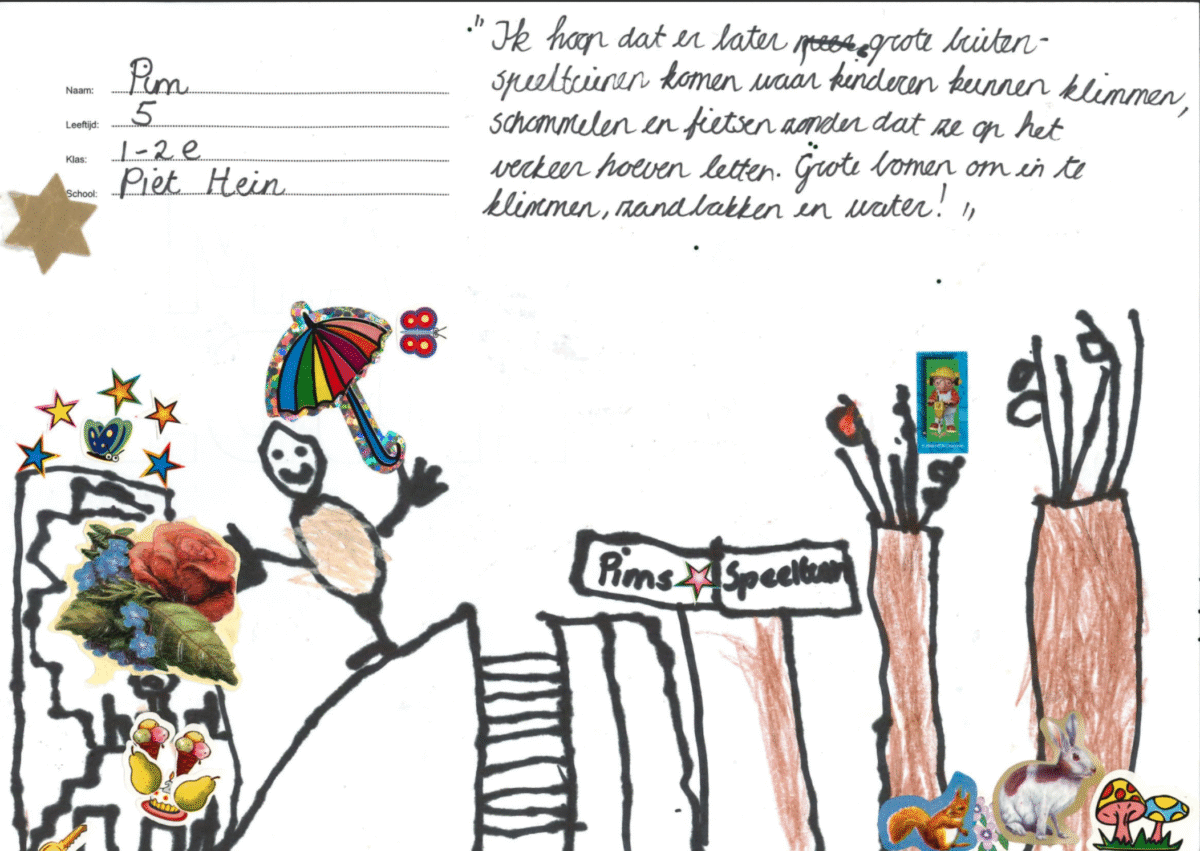 Naam: Pim
Leeftijd: 5
Klas: 1-2e
School: Piet Hein
"Ik hoop dat er later grote buiten-
speeltuinen komen waar kinderen kunnen klimmen,
schommelen en fietsen zonder dat ze op het
verkeer hoeven letten. Grote bomen om in te
klimmen, zandbakken en water!"
Pims Speeltuin